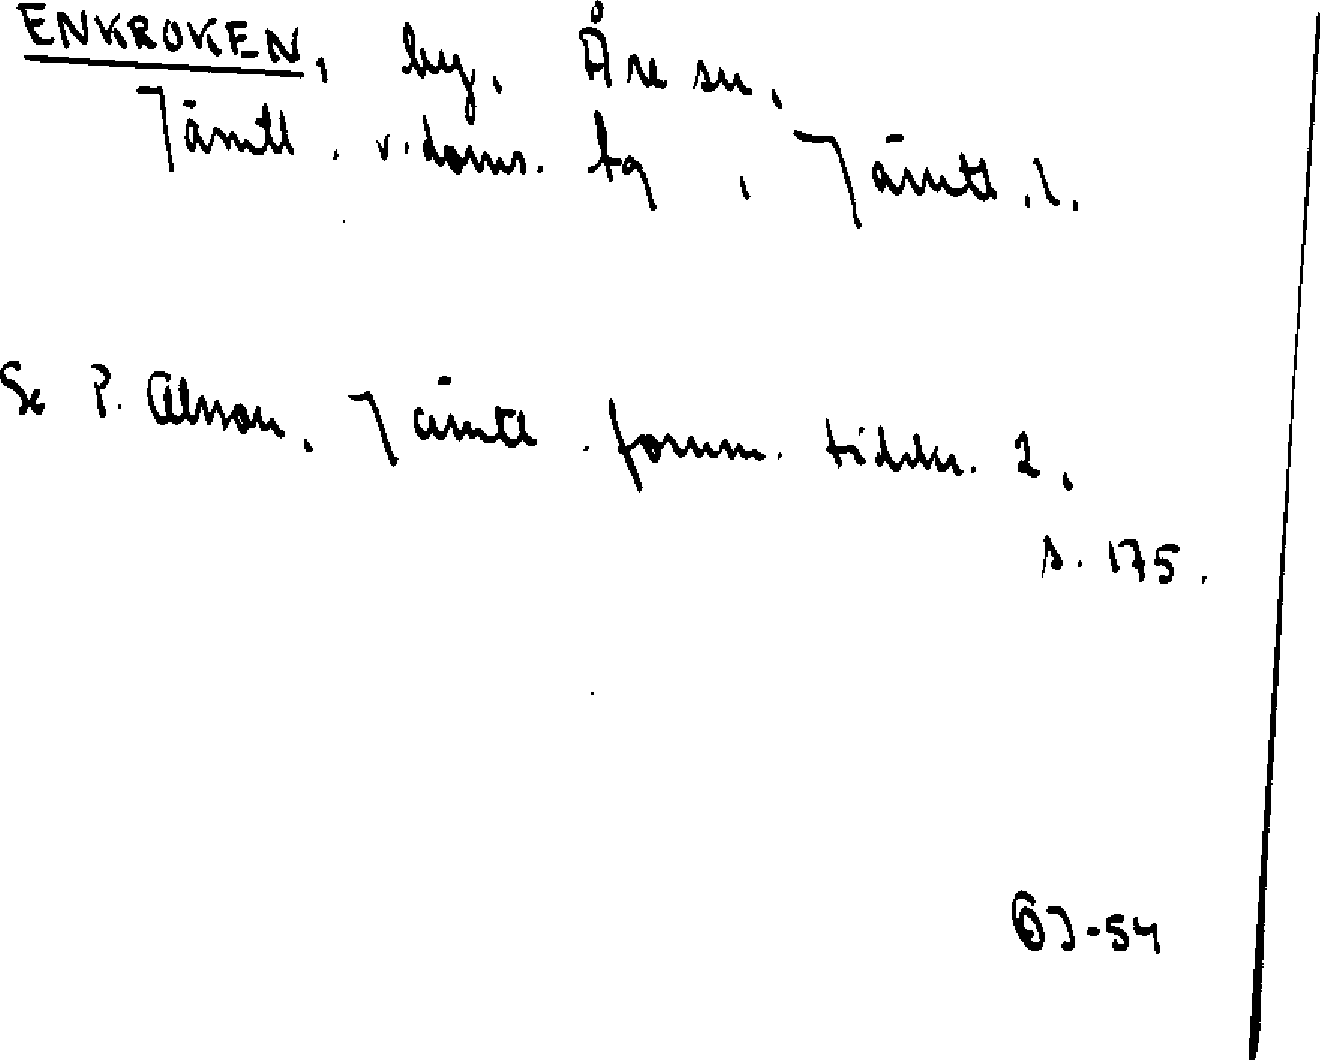 ENKROKEN, by, Åre sn,
Jämtl. v. doms. tg, Jämtl. l.
Se P. Olsson, Jämtl. fornm. tidskr. 2,
s. 175.
-54